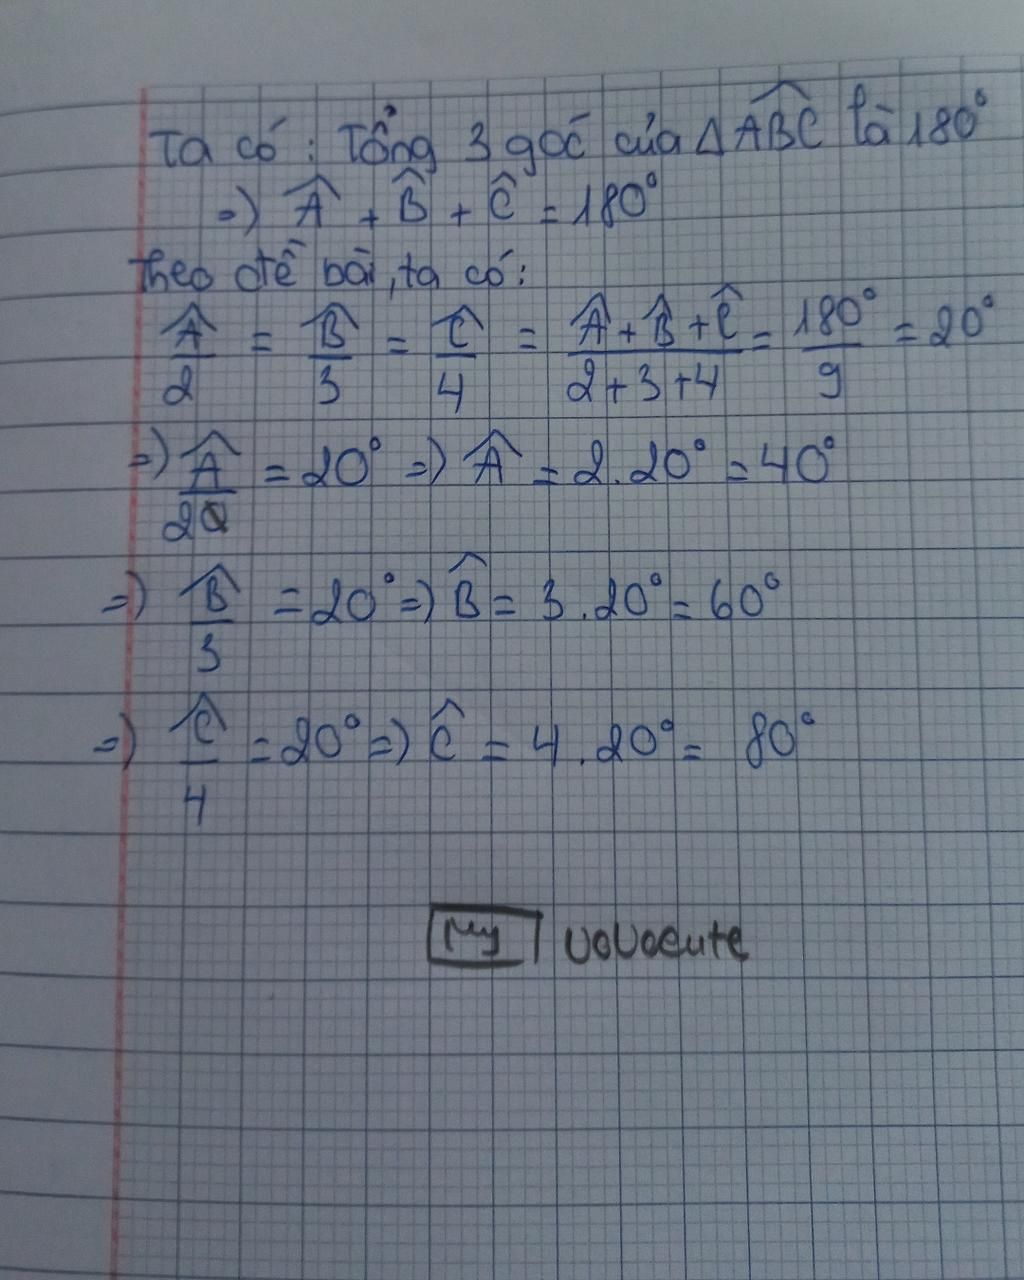 Ta có: Tổng 3 góc của ΔABC^ là 180°
=) Â + B̂ + Ĉ = 180°
theo đề bài, ta có:
Â/2 = B̂/3 = Ĉ/4 = (Â + B̂ + Ĉ)/(2+3+4) = 180°/9 = 20°
=) Â/2 = 20° =) Â = 2.20° = 40°
=) B̂/3 = 20° =) B̂ = 3.20° = 60°
=) Ĉ/4 = 20° =) Ĉ = 4.20° = 80°
My UoUocute